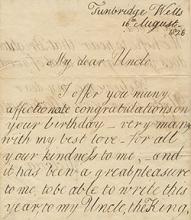 Tunbridge Wells
16th August.
1826
My dear Uncle,
I offer you many
affectionate congratulations on
your birthday – very many
with my best love – for all
your kindness to me, – and
it has been a great pleasure
to me, to be able to write this
year to my Uncle, the King